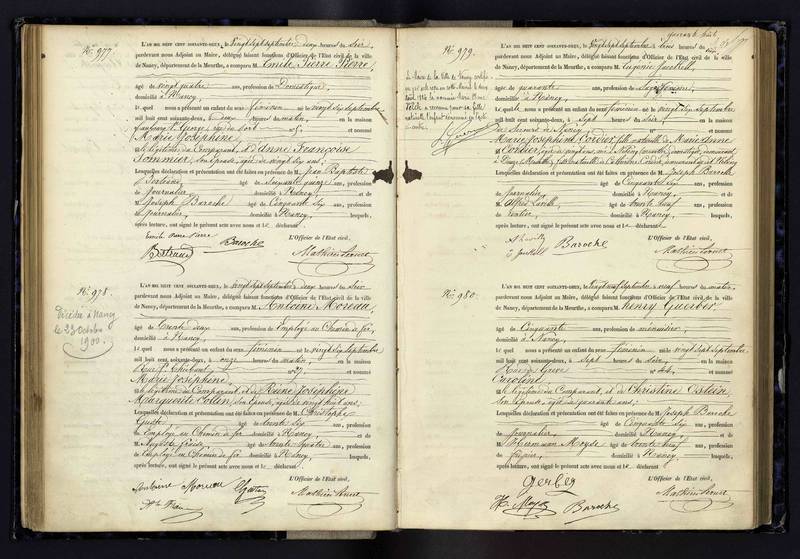 N.° 977.
L'an mil huit cent soixante-deux, le vingt sept septembre à deux heures du soir,
pardevant nous Adjoint au Maire, délégué faisant fonctions d'Officier de l'État civil de la ville
de Nancy, département de la Meurthe, a comparu M. Emile Pierre Pierre,
âgé de vingt quatre ans, profession de Domestique,
domicilié à Nancy,
Lequel nous a présenté un enfant du sexe féminin né le vingt six septembre
mil huit cent soixante-deux, à deux heures du matin, en la maison
faubourg St. George, n.° 5, et nommé
Marie Joséphine
fille légitime du Comparant, et d'Anne Françoise
Pommier, son épouse, âgée de vingt six ans;
Lesquelles déclaration et présentation ont été faites en présence de M. Jean Baptiste
Bertrand, âgé de soixante quinze ans, profession
de Journalier, domicilié à Nancy, et de
M. Joseph Baroche âgé de Cinquante six ans, profession
de Journalier, domicilié à Nancy, lesquels,
après lecture, ont signé le présent acte avec nous et le déclarant
Emile Pierre Pierre
Bertrand Baroche
L'Officier de l'État civil,
N.° 978.
Décédée à Nancy
le 23 Octobre
1900.
L'an mil huit cent soixante-deux, le vingt sept septembre à deux heures du soir
pardevant nous Adjoint au Maire, délégué faisant fonctions d'Officier de l'État civil de la ville
de Nancy, département de la Meurthe, a comparu M. Antoine Moreau,
âgé de Trente deux ans, profession de Employé au Chemin de fer,
domicilié à Nancy,
Lequel nous a présenté un enfant du sexe féminin né le vingt six septembre
mil huit cent soixante-deux, à onze heures du matin, en la maison
Rue St. Thiébaut n.° 29, et nommé
Marie Joséphine
fille légitime du Comparant, et de Reine Joséphine
Marguerite Colin, son épouse, âgée de vingt huit ans;
Lesquelles déclaration et présentation ont été faites en présence de M. Christophe
âgé de trente six ans, profession
de Employé au Chemin de fer domicilié à Nancy, et de
M. Auguste âgé de trente quatre ans, profession
de Employé au Chemin de fer domicilié à Nancy, lesquels,
après lecture, ont signé le présent acte avec nous et le déclarant
Antoine Moreau
L'Officier de l'État civil,
N.° 979.
Le Maire de la Ville de Nancy certifie
L'an mil huit cent soixante-deux, le vingt sept septembre à trois heures du soir,
pardevant nous Adjoint au Maire, délégué faisant fonctions d'Officier de l'État civil de la ville
de Nancy, département de la Meurthe, a comparu M. Eugénie
âgée de quarante ans, profession de Sage femme,
domiciliée à Nancy,
Laquelle nous a présenté un enfant du sexe féminin né le vingt six septembre
mil huit cent soixante-deux, à Sept heures du soir, en la maison
de Secours de Nancy et nommé
Marie Joséphine Cordier, fille naturelle de Marie Anne
Cordier,
Lesquelles déclaration et présentation ont été faites en présence de M. Joseph Baroche
âgé de Cinquante six ans, profession
de Journalier, domicilié à Nancy, et de
M. Alfred âgé de trente neuf ans, profession
de rentier, domicilié à Nancy, lesquels,
après lecture, ont signé le présent acte avec nous et le déclarant
Baroche
L'Officier de l'État civil,
N.° 980.
L'an mil huit cent soixante-deux, le vingt neuf septembre à neuf heures du matin,
pardevant nous Adjoint au Maire, délégué faisant fonctions d'Officier de l'État civil de la ville
de Nancy, département de la Meurthe, a comparu M. Henry Guerber
âgé de Cinquante ans, profession de menuisier,
domicilié à Nancy,
Lequel nous a présenté un enfant du sexe féminin né le vingt sept septembre
mil huit cent soixante-deux, à Sept heures du soir, en la maison
Rue de Grève n.° 44, et nommé
Caroline
fille légitime du Comparant, et de Christine Ostein
son épouse, âgée de quarante ans;
Lesquelles déclaration et présentation ont été faites en présence de M. Joseph Baroche
âgé de Cinquante six ans, profession
de Journalier, domicilié à Nancy, et de
M. âgé de trente neuf ans, profession
de fripier, domicilié à Nancy, lesquels,
après lecture, ont signé le présent acte avec nous et le déclarant
gerber
Baroche
L'Officier de l'État civil,